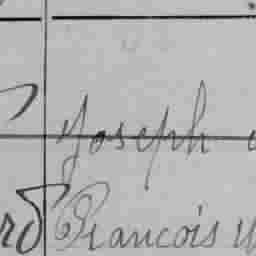 Joseph
rd François